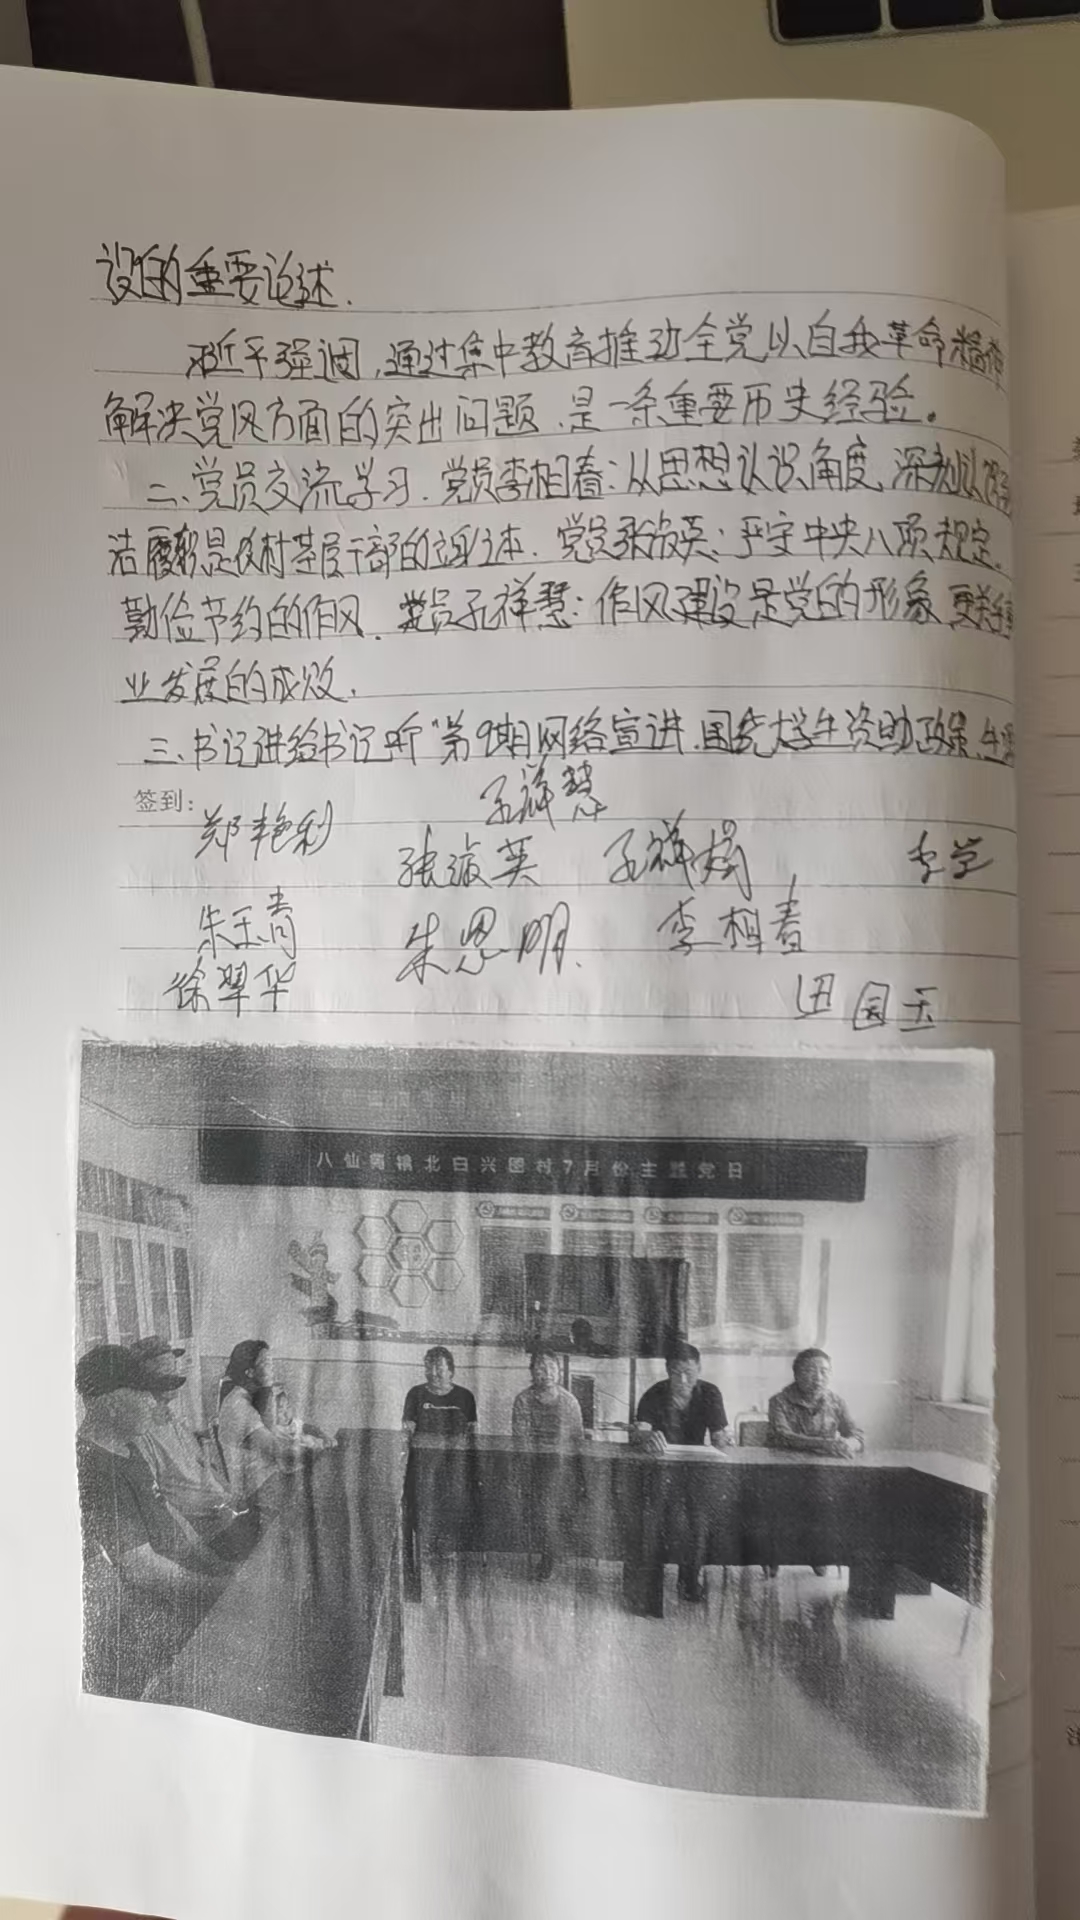 设的重要论述.
习近平强调,通过集中教育推动全党以自我革命精神
解决党风方面的突出问题、是一条重要历史经验。
二、党员交流学习. 党员李相春:从思想认识角度、深刻认识到
洁履职是农村基层干部的立身之本. 党员张淑英:严守中央八项规定.
勤俭节约的作风. 党员孔祥慧:作风建设是党的形象 更关乎
业发展的成败.
三、书记讲给书记听"第9期网络宣讲.国先大学生资助政策、生
签到:
孔祥慧
郑艳利 张淑英 孔祥娟 李学
朱玉青 朱恩明. 李相春
徐翠华 田园玉
八仙筒镇北白兴图村7月份主题党日